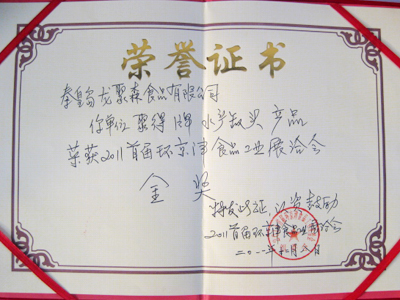 荣誉证书
秦皇岛龙聚森食品有限公司
你单位聚得牌水产罐头产品
荣获2011首届环京津食品工业展洽会
金奖
特发此证，以资鼓励
2011首届环京津食品工业展洽会
二〇一一年 月 日